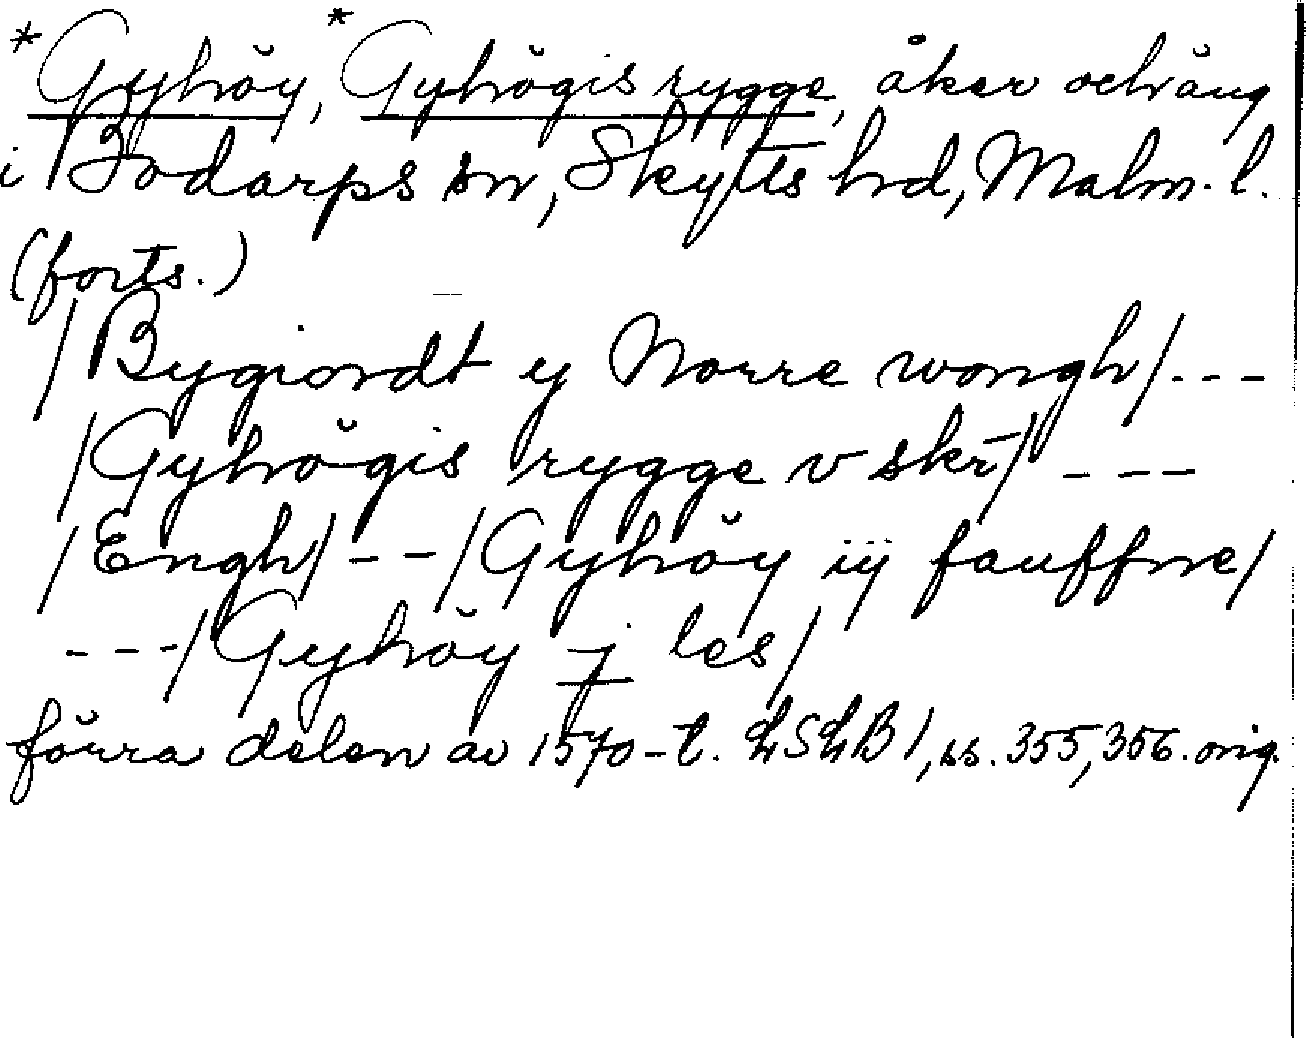 *Gyhöy, *Gyhögis rygge, åker och äng
i Bodarps sn, Skytts hd, Malm. l.
(forts.)
/Bygiordt y Norre wongh/---
/Gyhögis rygge v skr̄/ ---
/Engh/---/Gyhöy iij fauffne/
---/Gyhöy j les/
förra delen av 1570-t. LSLB 1, ss. 355, 356. orig.